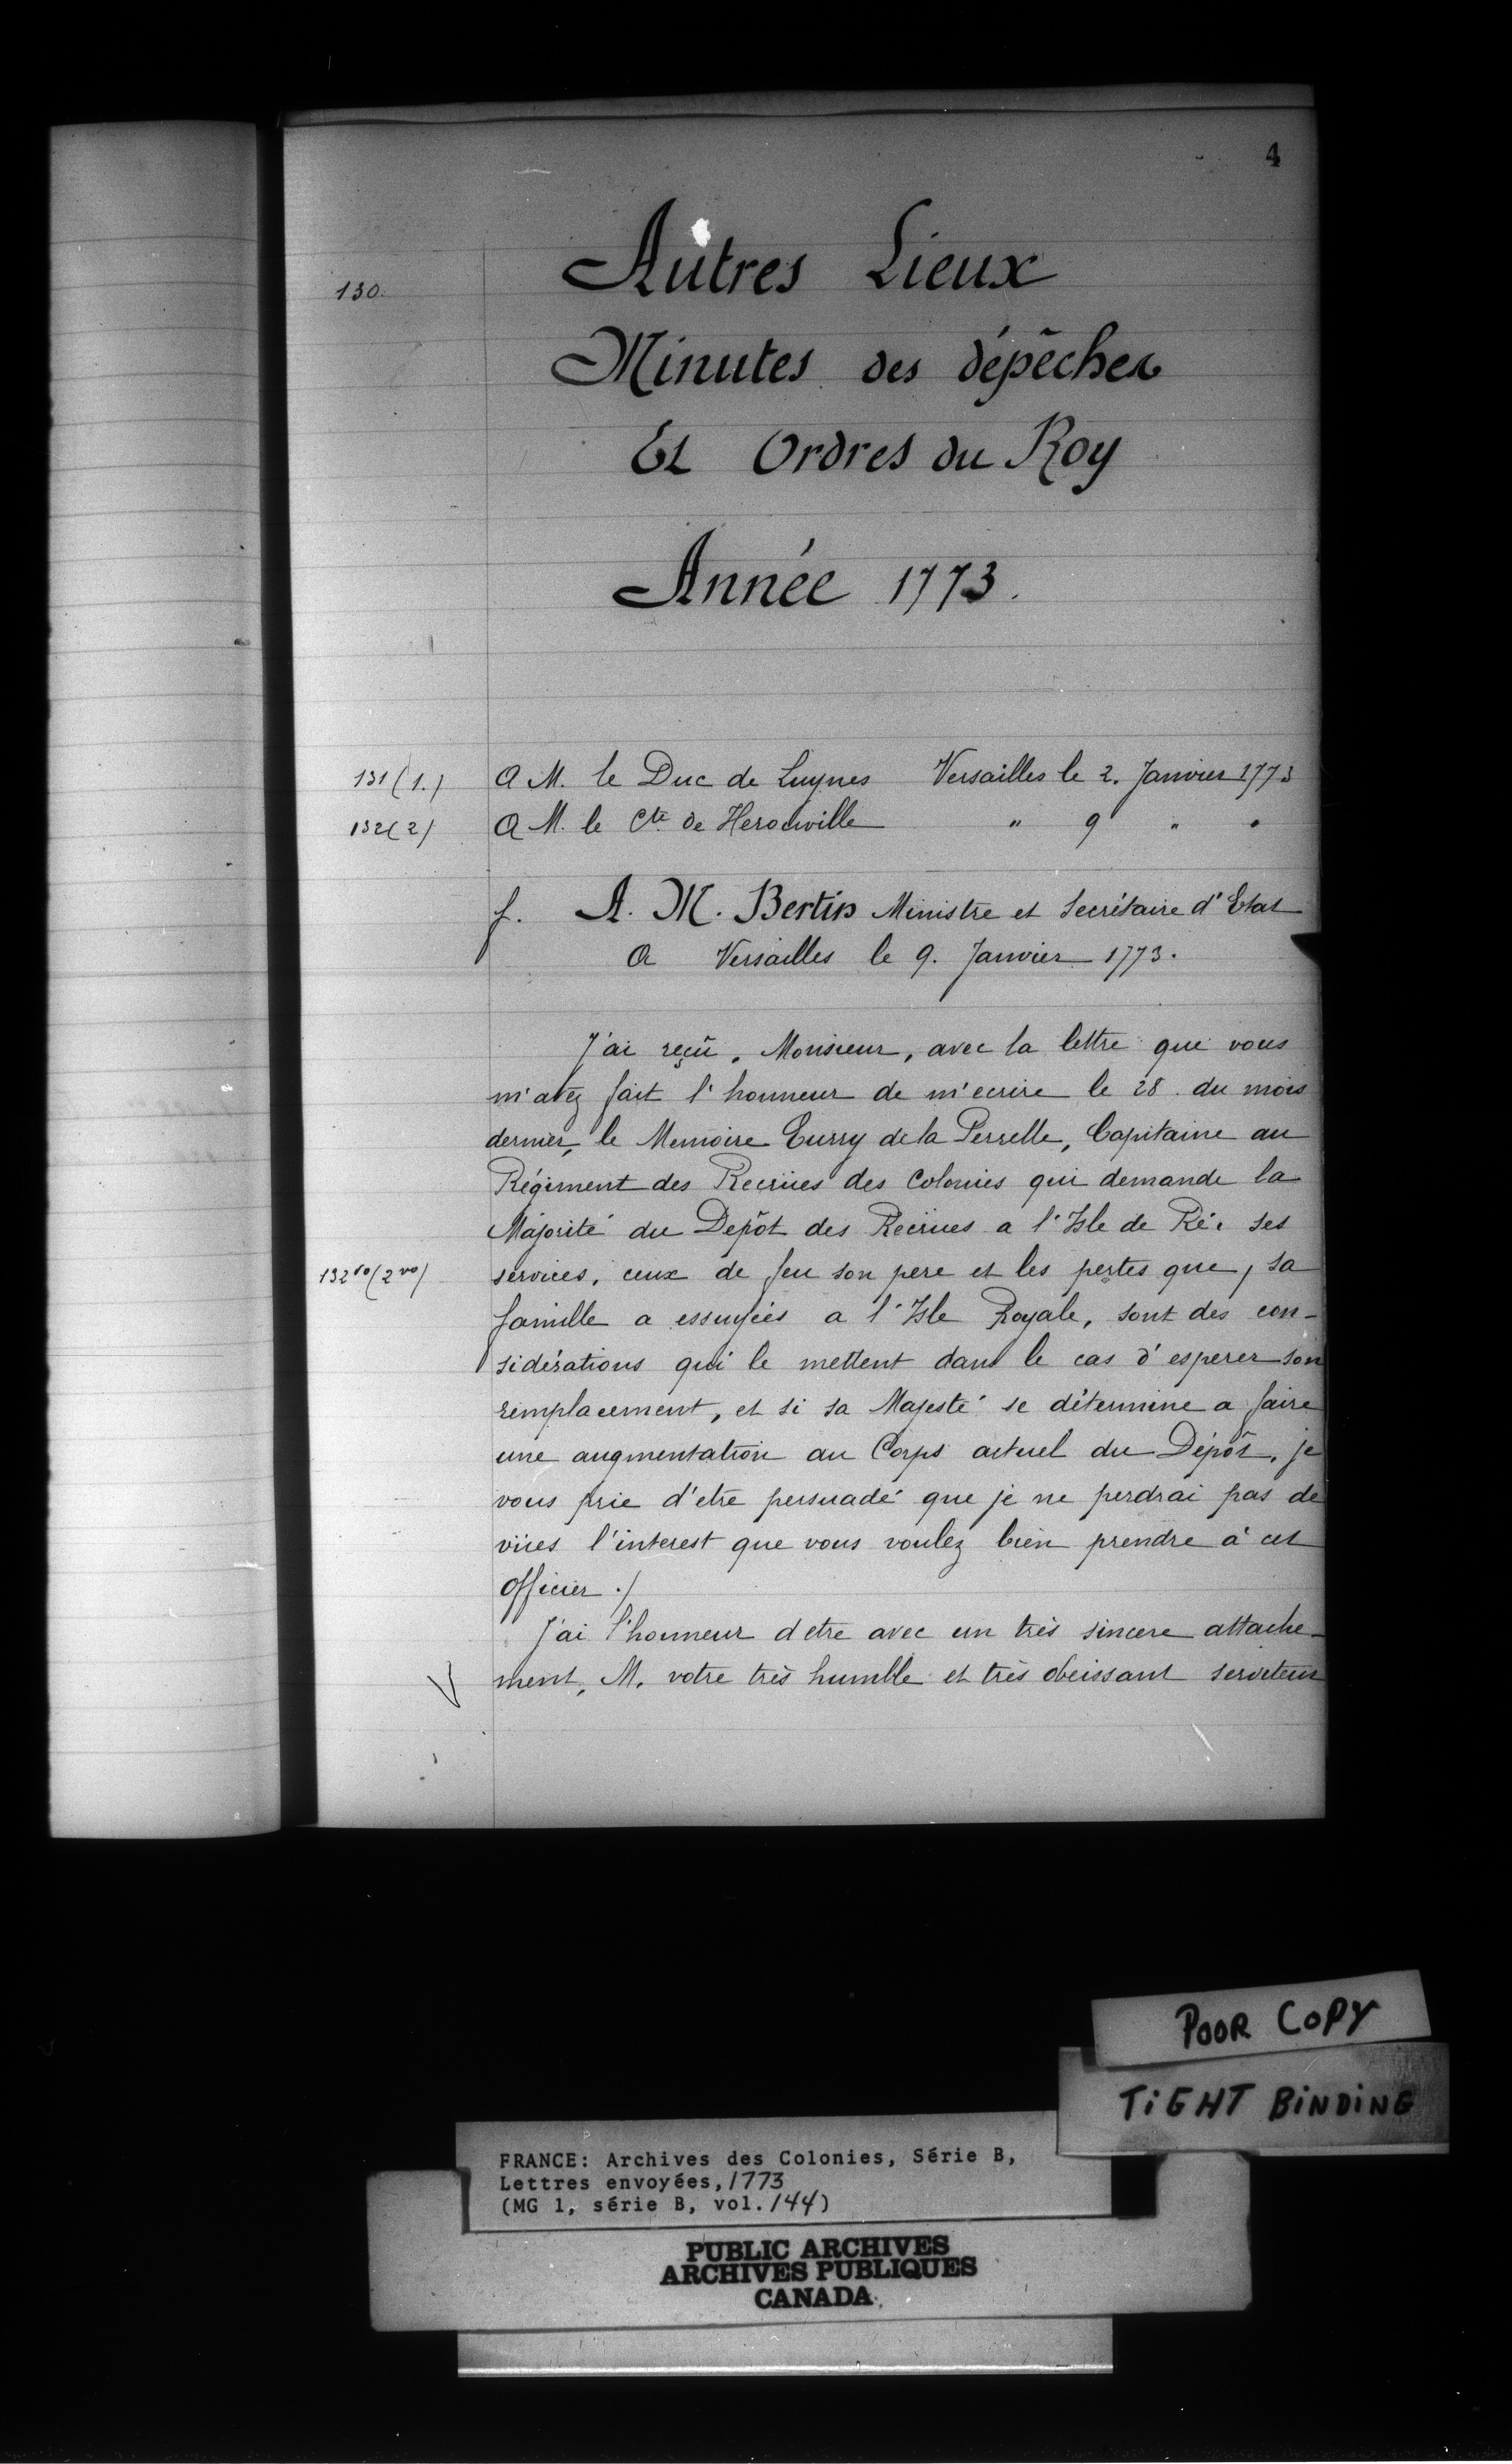 4
130.
Autres Lieux
Minutes des dépêches
Et Ordres du Roy
Année 1773.
131 (1.) A M. le Duc de Luynes Versailles le 2. Janvier 1773
132 (2) A M. le Cte de Herouville " 9 " "
f. A. M. Bertin Ministre et Secrétaire d'Etat
A Versailles le 9. Janvier 1773.
J'ai reçû, Monsieur, avec la lettre que vous
m'avez fait l'honneur de m'ecrire le 28. du mois
dernier, le Memoire Eurry de la Perrelle, Capitaine au
Régiment des Recrües des Colonies qui demande la
Majorité du Depôt des Recrües a l'Isle de Ré. ses
132 vo (2 vo) services, ceux de feu son pere et les pertes que, sa
famille a essuyées a l'Isle Royale, sont des con-
sidérations qui le mettent dans le cas d'esperer son
remplacement, et si sa Majesté se détermine a faire
une augmentation au Corps actuel du Dépôt, je
vous prie d'etre persuadé que je ne perdrai pas de
vües l'interest que vous voulez bien prendre à cet
officier ./
J'ai l'honneur d'etre avec un très sincere attache-
ment, M. votre très humble et très obeissant serviteur
POOR COPY
TIGHT BINDING
FRANCE: Archives des Colonies, Série B,
Lettres envoyées, 1773
(MG 1, série B, vol. 144)
PUBLIC ARCHIVES
ARCHIVES PUBLIQUES
CANADA